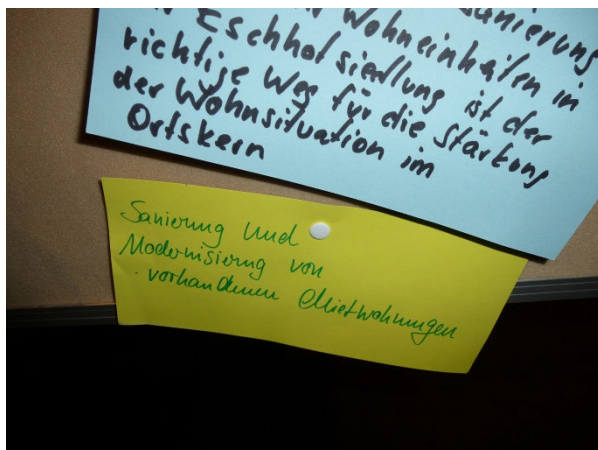 Sanierung
Wohneinheiten in
Eschhofsiedlung ist der
richtige Weg für die Stärkung
der Wohnsituation im
Ortskern
Sanierung und
Modernisierung von
vorhandenen Mietwohnungen